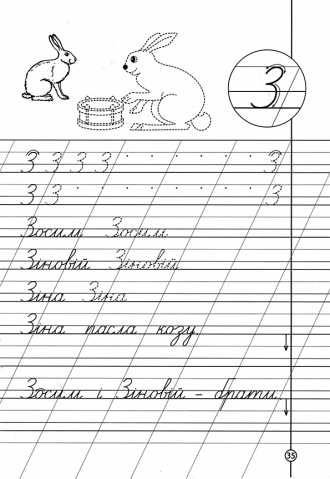 З
З З З З З
З З З
Зосим Зосим
Зіновій Зіновій
Зіна Зіна
Зіна пасла козу.
Зосим і Зіновій - брати.
35